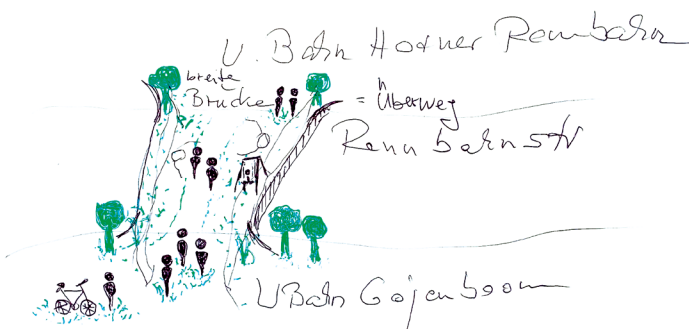 U. Bahn Horner Rennbahn
breite
Brücke = Überweg
Rennbahnstr
U Bahn Gojenboom